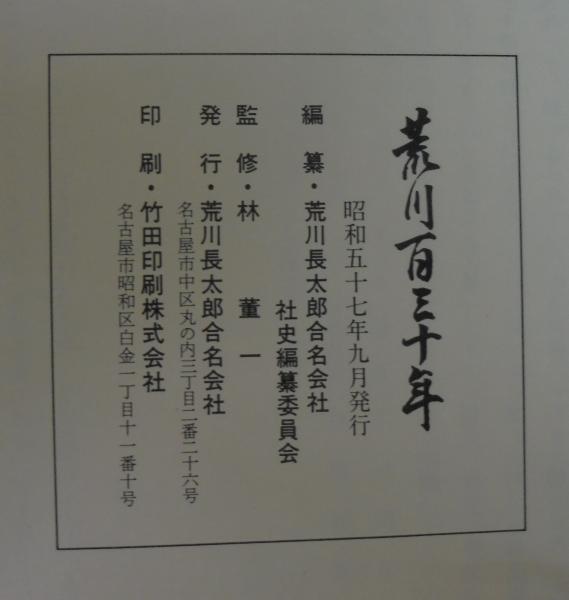 荒川百三十年
昭和五十七年九月発行
編纂・荒川長太郎合名会社
社史編纂委員会
監修・林 董一
発行・荒川長太郎合名会社
名古屋市中区丸の内三丁目二番二十六号
印刷・竹田印刷株式会社
名古屋市昭和区白金一丁目十一番十号